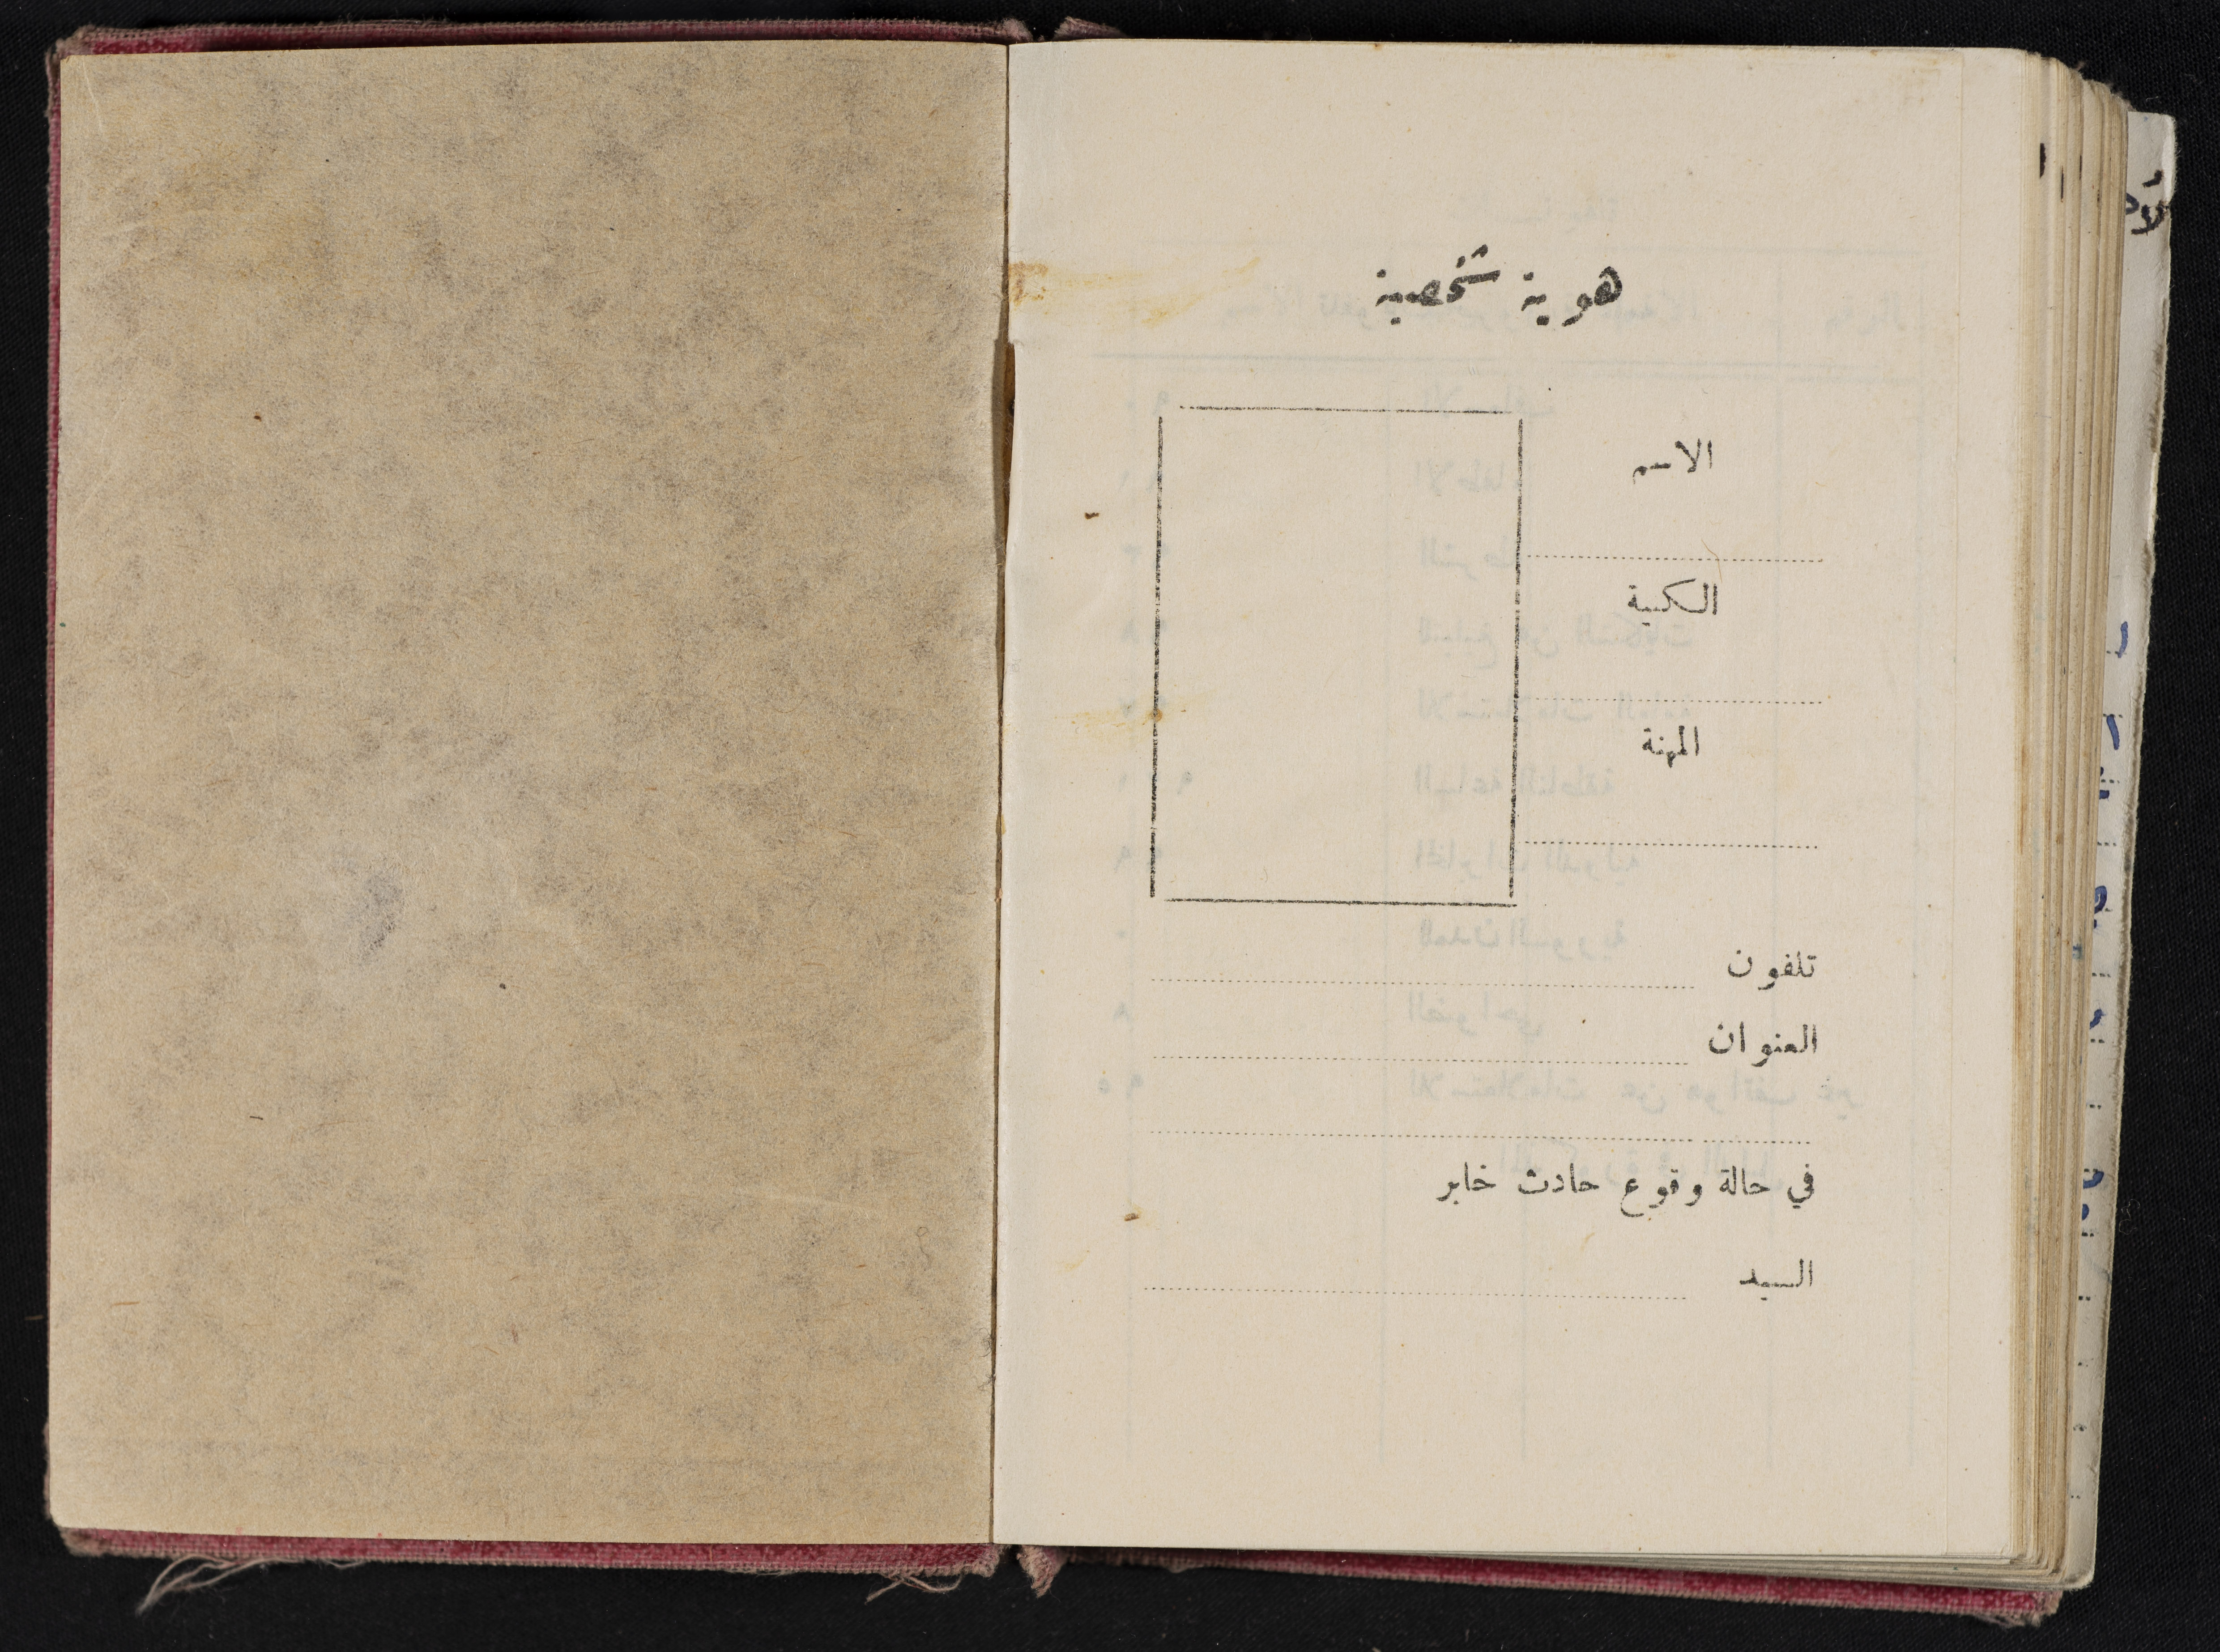 هوية شخصية
الاسم
الكنية
المهنة
تلفون
العنوان
في حالة وقوع حادث خابر
السيد